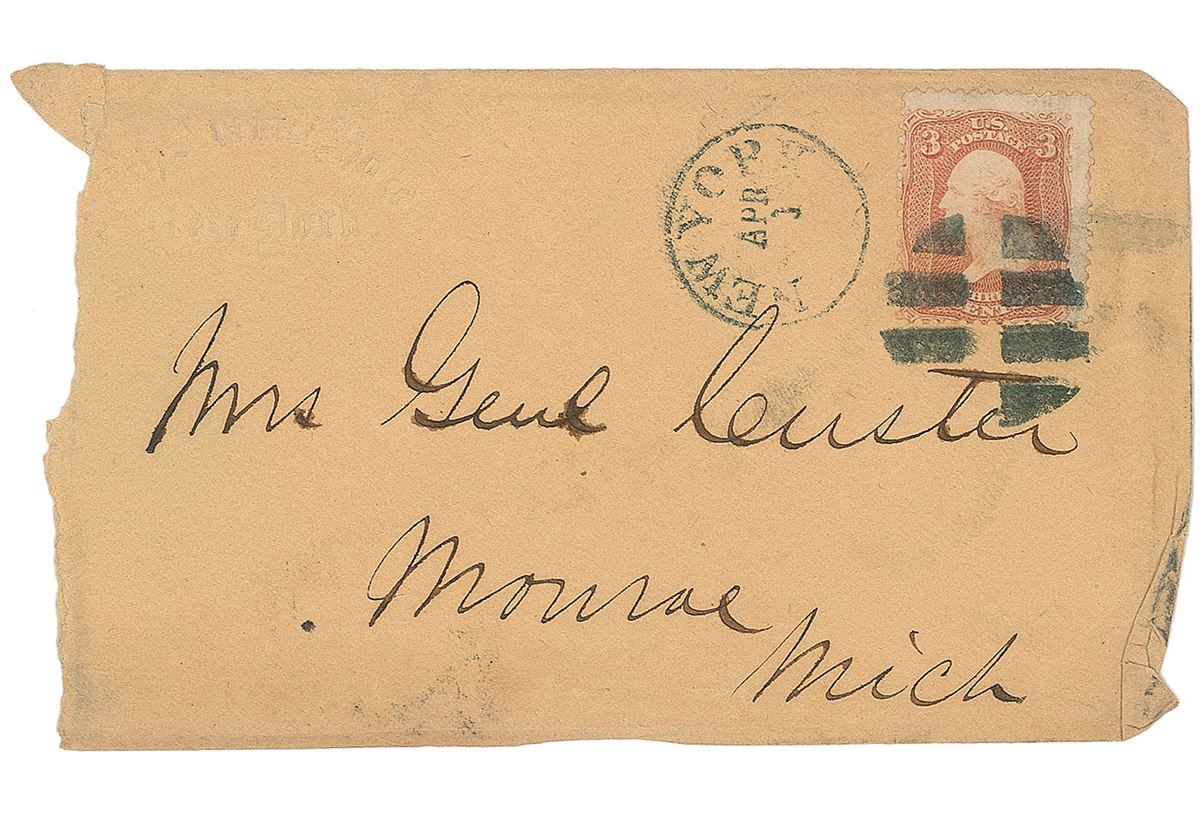 New York.
NEW YORK
APR
1
U.S.
POSTAGE
3 3
CENT
Mrs Genl Custer
Monroe
Mich